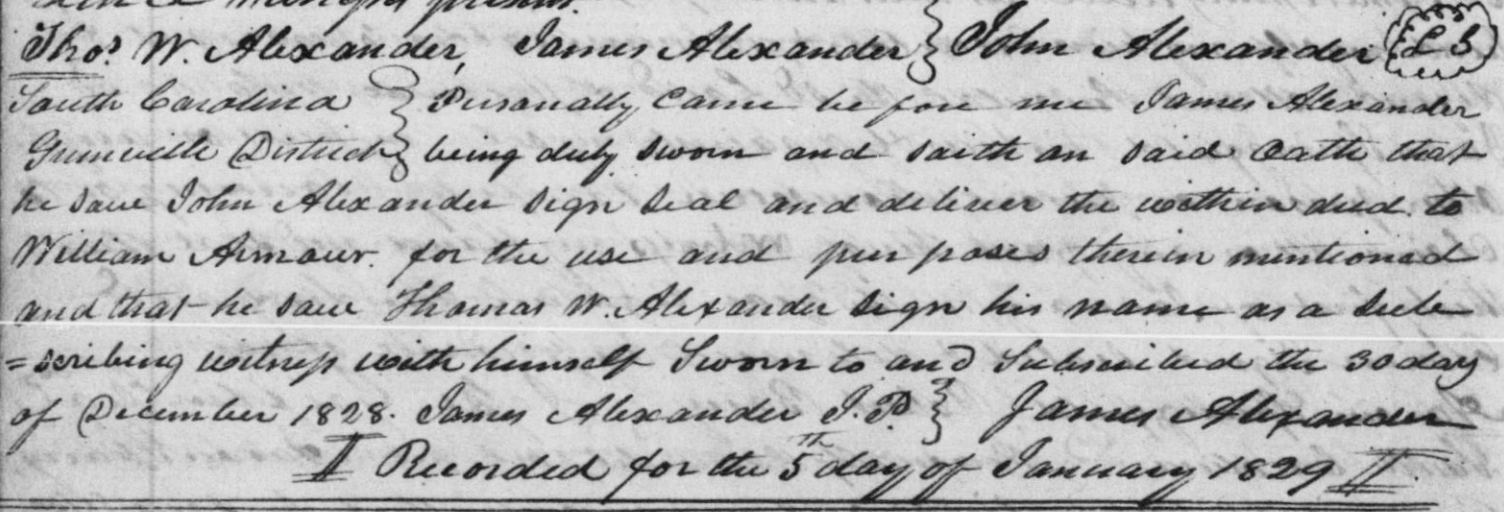 Thos. W. Alexander, James Alexander } John Alexander (L S)
South Carolina } Personally came be fore me James Alexander
Greenville District } being duly sworn and saith on said Oath that
he saw John Alexander sign seal and deliver the within deed to
William Armour. for the use and pur poses therein mentioned
and that he saw Thomas W. Alexander sign his name as a sub
=scribing witness with himself Sworn to and Subscribed the 30 day
of December 1828. James Alexander J. P. } James Alexander
Recorded for the 5th day of January 1829